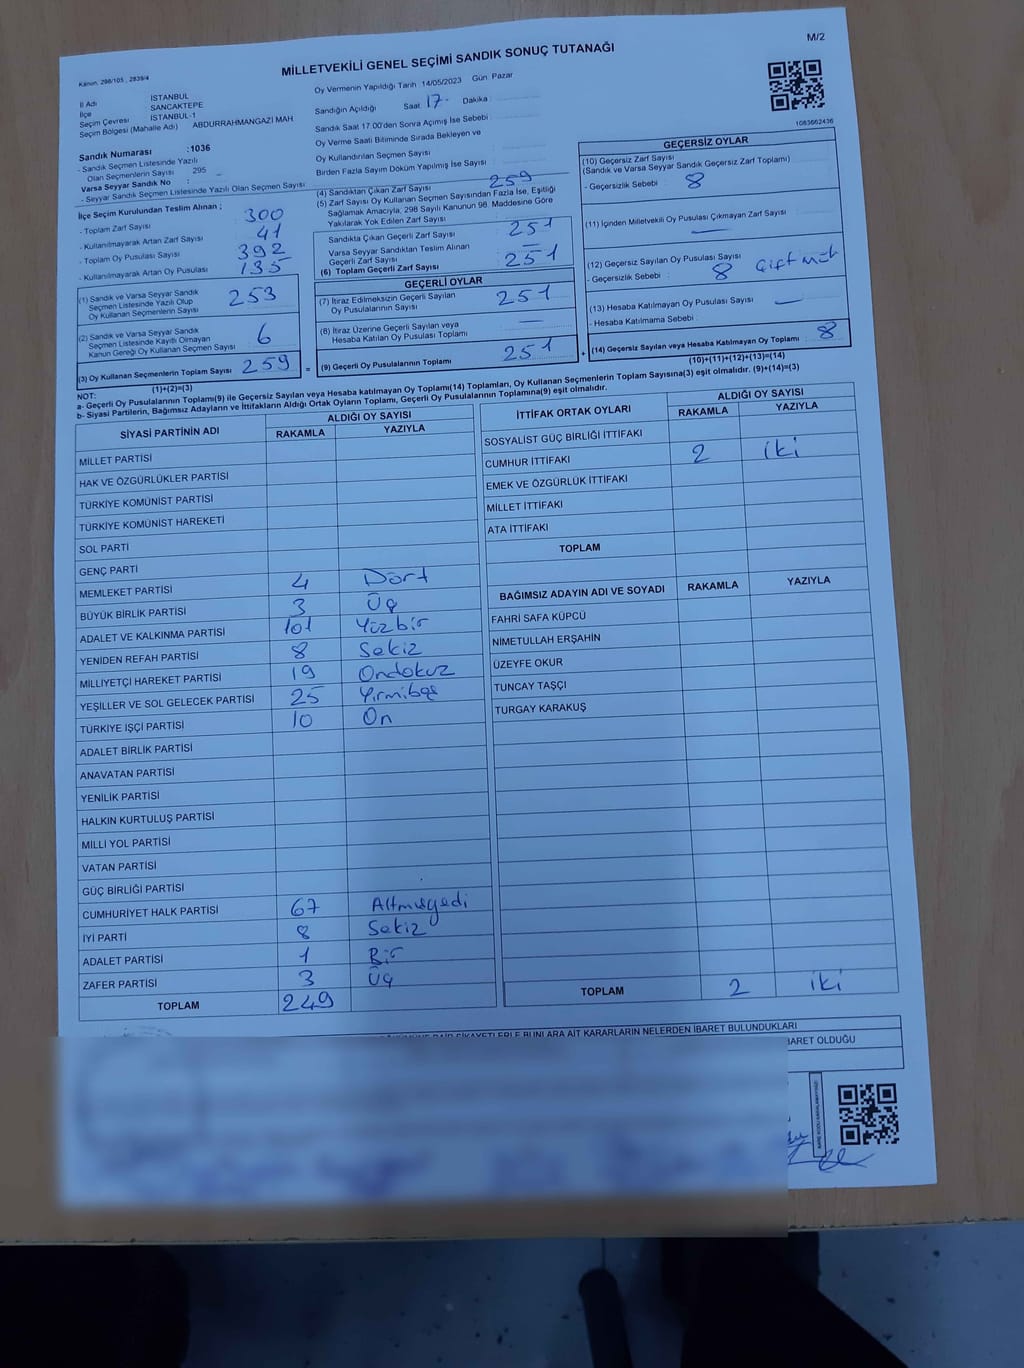 M/2
Kanun, 298/105 , 2839/4
MİLLETVEKİLİ GENEL SEÇİMİ SANDIK SONUÇ TUTANAĞI
İl Adı : İSTANBUL
İlçe : SANCAKTEPE
Seçim Çevresi : İSTANBUL-1
Seçim Bölgesi (Mahalle Adı) ABDURRAHMANGAZİ MAH
Sandık Numarası :1036
- Sandık Seçmen Listesinde Yazılı
Olan Seçmenlerin Sayısı : 295
Varsa Seyyar Sandık No :
- Seyyar Sandık Seçmen Listesinde Yazılı Olan Seçmen Sayısı
İlçe Seçim Kurulundan Teslim Alınan ;
- Toplam Zarf Sayısı 300
- Kullanılmayarak Artan Zarf Sayısı 41
- Toplam Oy Pusulası Sayısı 392
- Kullanılmayarak Artan Oy Pusulası 135
(1) Sandık ve Varsa Seyyar Sandık
Seçmen Listesinde Yazılı Olup
Oy Kullanan Seçmenlerin Sayısı 253
(2) Sandık ve Varsa Seyyar Sandık
Seçmen Listesinde Kayıtlı Olmayan
Kanun Gereği Oy Kullanan Seçmen Sayısı 6
(3) Oy Kullanan Seçmenlerin Toplam Sayısı 259
(1)+(2)=(3)
Oy Vermenin Yapıldığı Tarih 14/05/2023 Gün Pazar
Sandığın Açıldığı Saat 17 Dakika :
Sandık Saat 17.00'den Sonra Açılmış İse Sebebi :
Oy Verme Saati Bitiminde Sırada Bekleyen ve
Oy Kullandırılan Seçmen Sayısı :
Birden Fazla Sayım Döküm Yapılmış İse Sayısı :
(4) Sandıktan Çıkan Zarf Sayısı 259
(5) Zarf Sayısı Oy Kullanan Seçmen Sayısından Fazla İse, Eşitliği
Sağlamak Amacıyla, 298 Sayılı Kanunun 98. Maddesine Göre
Yakılarak Yok Edilen Zarf Sayısı :
Sandıkta Çıkan Geçerli Zarf Sayısı 251
Varsa Seyyar Sandıktan Teslim Alınan
Geçerli Zarf Sayısı —
(6) Toplam Geçerli Zarf Sayısı 251
GEÇERLİ OYLAR
(7) İtiraz Edilmeksizin Geçerli Sayılan
Oy Pusulalarının Sayısı 251
(8) İtiraz Üzerine Geçerli Sayılan veya
Hesaba Katılan Oy Pusulası Toplamı —
= (9) Geçerli Oy Pusulalarının Toplamı 251 +
1083662436
GEÇERSİZ OYLAR
(10) Geçersiz Zarf Sayısı
(Sandık ve Varsa Seyyar Sandık Geçersiz Zarf Toplamı)
- Geçersizlik Sebebi : 8
(11) İçinden Milletvekili Oy Pusulası Çıkmayan Zarf Sayısı
—
(12) Geçersiz Sayılan Oy Pusulası Sayısı
- Geçersizlik Sebebi : 8
(13) Hesaba Katılmayan Oy Pusulası Sayısı —
- Hesaba Katılmama Sebebi :
(14) Geçersiz Sayılan veya Hesaba Katılmayan Oy Toplamı 8
(10)+(11)+(12)+(13)=(14)
NOT:
a- Geçerli Oy Pusulalarının Toplamı(9) ile Geçersiz Sayılan veya Hesaba katılmayan Oy Toplamı(14) Toplamları, Oy Kullanan Seçmenlerin Toplam Sayısına(3) eşit olmalıdır. (9)+(14)=(3)
b- Siyasi Partilerin, Bağımsız Adayların ve İttifakların Aldığı Ortak Oyların Toplamı, Geçerli Oy Pusulalarının Toplamına(9) eşit olmalıdır.
SİYASİ PARTİNİN ADI ALDIĞI OY SAYISI
RAKAMLA YAZIYLA
MİLLET PARTİSİ
HAK VE ÖZGÜRLÜKLER PARTİSİ
TÜRKİYE KOMÜNİST PARTİSİ
TÜRKİYE KOMÜNİST HAREKETİ
SOL PARTİ
GENÇ PARTİ
MEMLEKET PARTİSİ 4 Dört
BÜYÜK BİRLİK PARTİSİ 3 Üç
ADALET VE KALKINMA PARTİSİ 101 Yüzbir
YENİDEN REFAH PARTİSİ 8 Sekiz
MİLLİYETÇİ HAREKET PARTİSİ 19 Ondokuz
YEŞİLLER VE SOL GELECEK PARTİSİ 25 Yirmibeş
TÜRKİYE İŞÇİ PARTİSİ 10 On
ADALET BİRLİK PARTİSİ
ANAVATAN PARTİSİ
YENİLİK PARTİSİ
HALKIN KURTULUŞ PARTİSİ
MİLLİ YOL PARTİSİ
VATAN PARTİSİ
GÜÇ BİRLİĞİ PARTİSİ
CUMHURİYET HALK PARTİSİ 67 Altmışyedi
İYİ PARTİ 8 Sekiz
ADALET PARTİSİ 1 Bir
ZAFER PARTİSİ 3 Üç
TOPLAM 249
İTTİFAK ORTAK OYLARI ALDIĞI OY SAYISI
RAKAMLA YAZIYLA
SOSYALİST GÜÇ BİRLİĞİ İTTİFAKI
CUMHUR İTTİFAKI 2 iki
EMEK VE ÖZGÜRLÜK İTTİFAKI
MİLLET İTTİFAKI
ATA İTTİFAKI
TOPLAM
BAĞIMSIZ ADAYIN ADI VE SOYADI RAKAMLA YAZIYLA
FAHRİ SAFA KÜPCÜ
NİMETULLAH ERŞAHİN
ÜZEYFE OKUR
TUNCAY TAŞÇI
TURGAY KARAKUŞ
TOPLAM 2 iki
ŞİKAYETLERLE BUNLARA AİT KARARLARIN NELERDEN İBARET BULUNDUKLARI
İBARET OLDUĞU